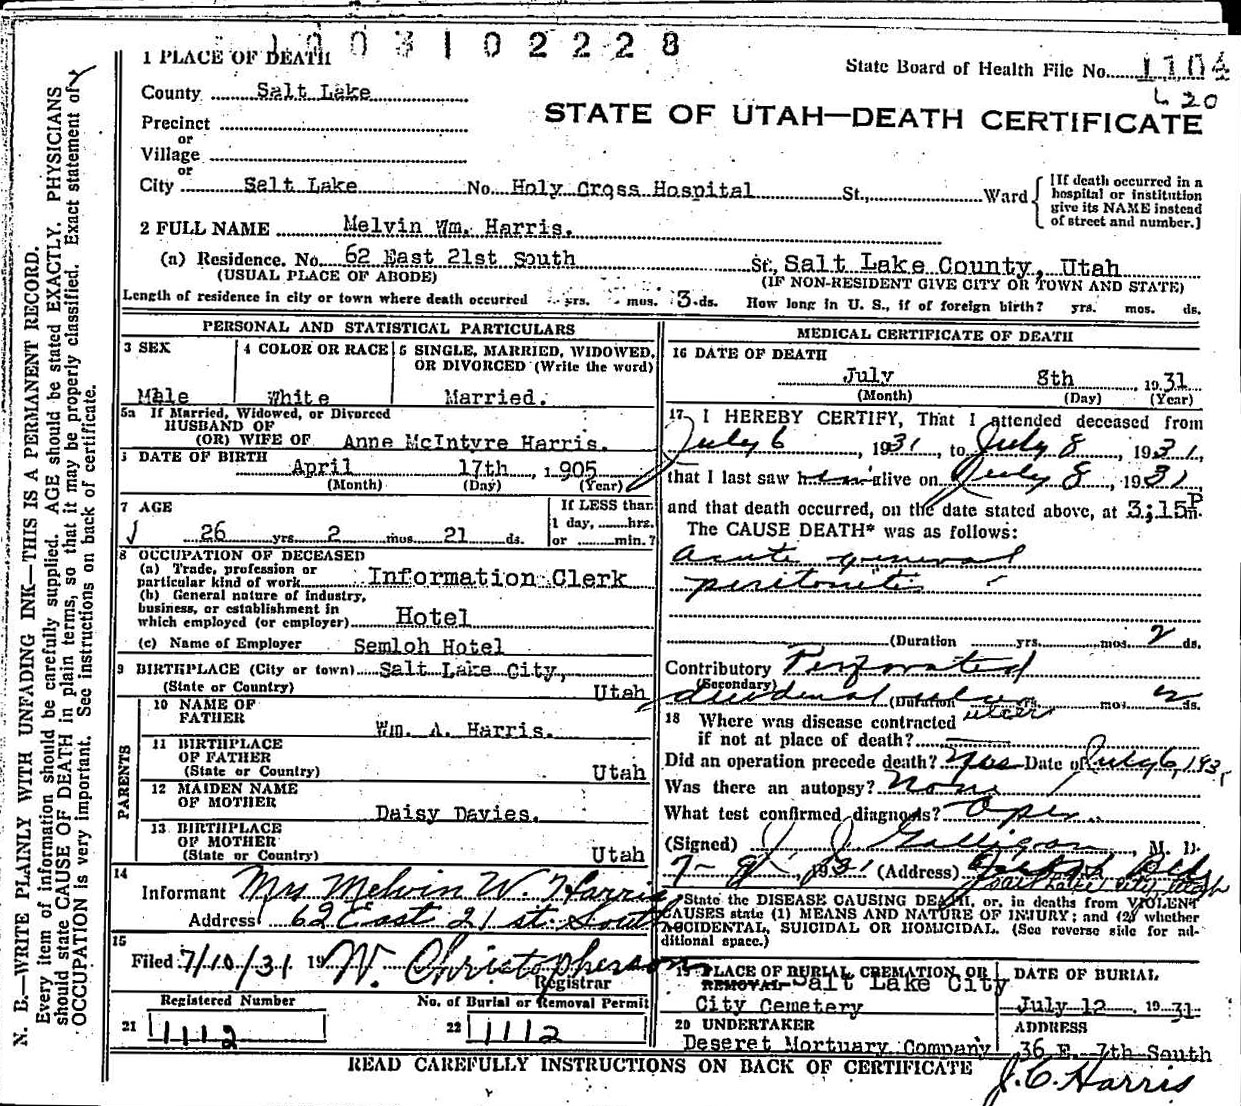 1003102228
1 PLACE OF DEATH
State Board of Health File No. 1104
County Salt Lake
L 20
STATE OF UTAH—DEATH CERTIFICATE
Precinct
or
Village
or
City Salt Lake No. Holy Cross Hospital St., Ward
[If death occurred in a
hospital or institution
give its NAME instead
of street and number.]
2 FULL NAME Melvin Wm. Harris.
(a) Residence. No. 62 East 21st South St., Salt Lake County, Utah
(USUAL PLACE OF ABODE) (IF NON-RESIDENT GIVE CITY OR TOWN AND STATE)
Length of residence in city or town where death occurred yrs. mos. 3 ds. How long in U. S., if of foreign birth? yrs. mos. ds.
PERSONAL AND STATISTICAL PARTICULARS
3 SEX
Male
4 COLOR OR RACE
White
5 SINGLE, MARRIED, WIDOWED,
OR DIVORCED (Write the word)
Married.
5a If Married, Widowed, or Divorced
HUSBAND OF
(OR) WIFE OF Anne McIntyre Harris.
DATE OF BIRTH
April 17th, 1905
(Month) (Day) (Year)
7 AGE
26 yrs. 2 mos. 21 ds.
If LESS than
1 day, hrs.
or min.?
8 OCCUPATION OF DECEASED
(a) Trade, profession or
particular kind of work Information Clerk
(b) General nature of industry,
business, or establishment in
which employed (or employer) Hotel
(c) Name of Employer Semloh Hotel
9 BIRTHPLACE (City or town) Salt Lake City,
(State or Country) Utah
PARENTS
10 NAME OF
FATHER Wm. A. Harris.
11 BIRTHPLACE
OF FATHER
(State or Country) Utah
12 MAIDEN NAME
OF MOTHER Daisy Davies.
13 BIRTHPLACE
OF MOTHER
(State or Country) Utah
14
Informant Mrs Melvin W. Harris
Address 62 East 21st South
15
Filed 7/10/31 19 W. Christopherson
Registrar
Registered Number
21 1112
No. of Burial or Removal Permit
22 1112
MEDICAL CERTIFICATE OF DEATH
16 DATE OF DEATH
July 8th, 1931
(Month) (Day) (Year)
17 I HEREBY CERTIFY, That I attended deceased from
July 6, 1931 to July 8, 1931,
that I last saw him alive on July 8, 1931,
and that death occurred, on the date stated above, at 3;15 P m.
The CAUSE DEATH* was as follows:
Acute general
peritonitis
(Duration yrs. mos. 2 ds.
Contributory Perforated
(Secondary)
duodenal ulcer (Duration yrs. mos. 2 ds.
ulcer
18 Where was disease contracted
if not at place of death?
Did an operation precede death? Yes Date of July 6, 1931
Was there an autopsy? None
What test confirmed diagnosis? Oper.
(Signed) J. J. Galligan, M. D.
7-8, 1931 (Address) Bldg
Salt Lake City, Utah
State the DISEASE CAUSING DEATH, or, in deaths from VIOLENT
CAUSES state (1) MEANS AND NATURE OF INJURY; and (2) whether
ACCIDENTAL, SUICIDAL OR HOMICIDAL. (See reverse side for additional space.)
19 PLACE OF BURIAL, CREMATION, OR
REMOVAL Salt Lake City
City Cemetery
DATE OF BURIAL
July 12, 1931
20 UNDERTAKER
Deseret Mortuary Company
ADDRESS
36 E. 7th South
J. C. Harris
READ CAREFULLY INSTRUCTIONS ON BACK OF CERTIFICATE
N. B.—WRITE PLAINLY WITH UNFADING INK—THIS IS A PERMANENT RECORD.
Every item of information should be carefully supplied. AGE should be stated EXACTLY. PHYSICIANS
should state CAUSE OF DEATH in plain terms, so that it may be properly classified. Exact statement of
OCCUPATION is very important. See instructions on back of certificate.